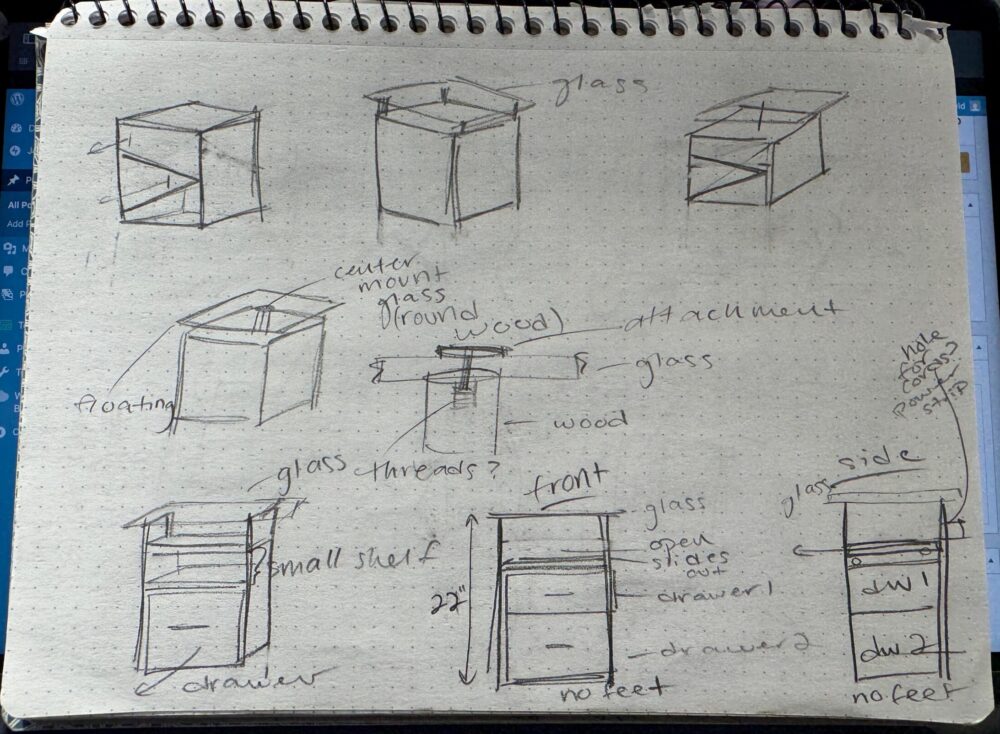 glass
center
mount
glass
(round
wood)
attachment
glass
wood
threads?
floating
hole
for
cords?
power
strip
glass
small shelf
drawer
front
glass
open
slides
out
drawer 1
drawer 2
22"
no feet
side
glass
dw1
dw2
no feet
All Po
Add P